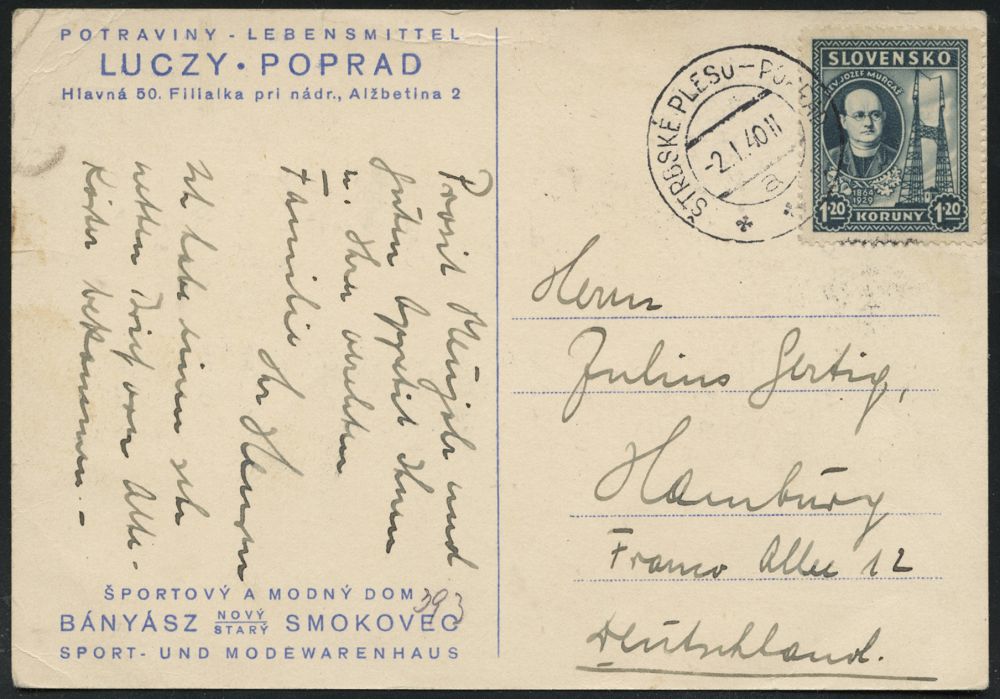 POTRAVINY - LEBENSMITTEL
LUCZY · POPRAD
Hlavná 50. Filialka pri nádr., Alžbetina 2
Prosit Neujahr und
guten Appetit Ihnen
u. Ihrer verehrten
Familie
Ihr
Ich habe einen sehr
netten Brief von
bekommen. -
ŠPORTOVÝ A MODNÝ DOM
BÁNYÁSZ NOVÝ STARÝ SMOKOVEC
SPORT- UND MODEWARENHAUS
393
ŠTRBSKÉ PLESO - POPRAD
-2.I.40 II
a
SLOVENSKO
REV. JOZEF MURGAŠ
1864
1929
1.20 KORUNY 1.20
Herrn
Julius Gertig,
Hamburg
Franco Allee 12
Deutschland.